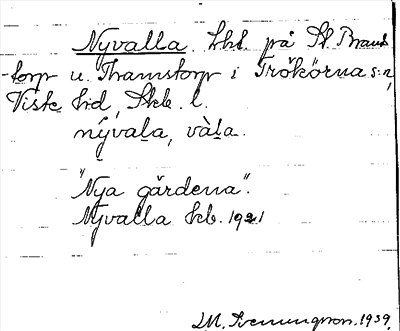 Nyvalla. Lht. på St. Brands
-torp u. Thamstorp i Trökörna s:n,
Viste hd, Skb. l.
nývaḷa, vàḷa.
"Nya gärdena".
Nyvalla kb. 1921
M. Svenungsson. 1939.